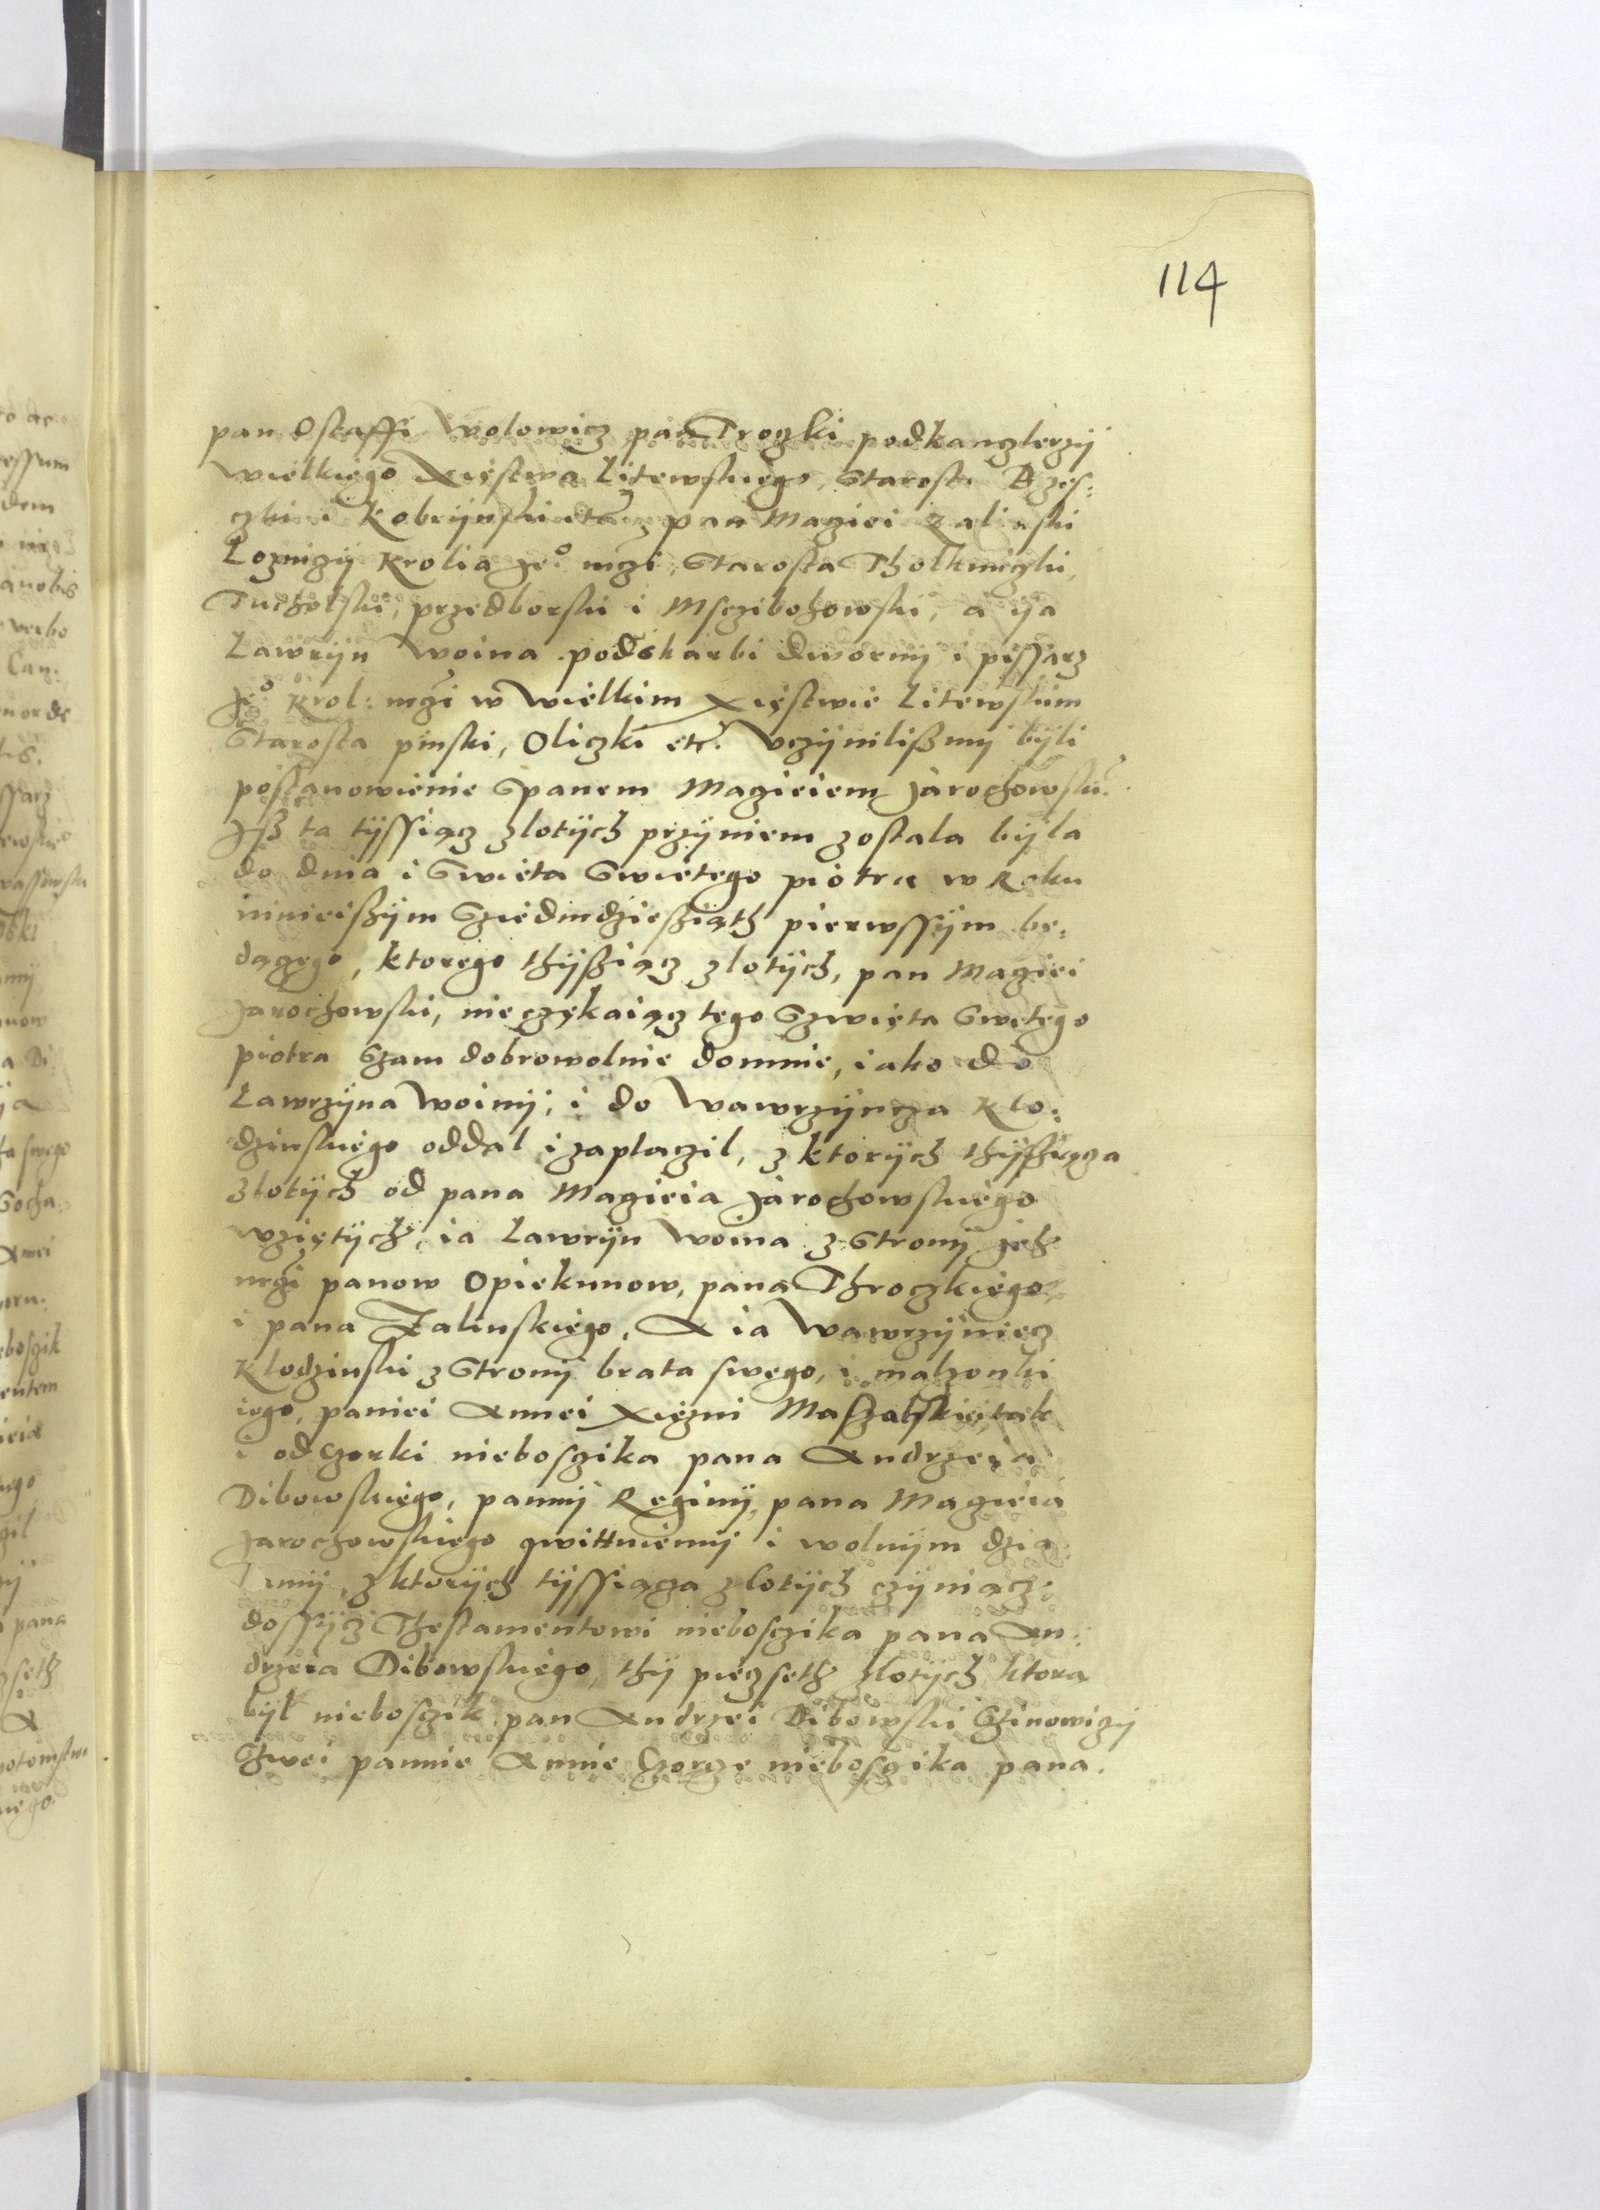 114
pan Ostaffi Wolowicz pan Troczki podkanczlerzÿ
wielkiego Xięstwa Litewskiego, Starosta Brzes:
czki i Kobrÿnski etc, pan Maciei Zalinski
Lozniczÿ Krolia Je° mczi, Starosta Tholkmiczki,
Tucholski, przedborski i Msczibohowski, a ija
Lawrÿn Woina podskarbi dwornÿ i pissarz
Je° Krol: mczi w Wielkim Xięstwie Litewskim
Starosta pinski, Oliczki etc. Vczÿnilißmÿ bÿli
postanowienie Spanem Macieiem Jarochowski
Jß ta tÿssiącz zlotÿch przÿniem zostala bÿla
do dnia i Swieta Swietego piotra w Roku
ninieißÿm Sziedmdzießiąth pierwssÿm bę:
dącego, ktorego thÿßiącz zlotÿch, pan Maciei
Jarochowski, nieczękaiącz tego Szwięta Swetego
piotra Szam dobrowolnie domnie, iako do
Lawrzÿna Woinÿ, i do Wawrzÿncza Klo:
dzinskiego oddal i zaplaczil, z ktorÿch thÿßiącza
zlotÿch od pana Macieia Jarochowskiego
wziętÿch, ia Lawrÿn Woina z Stronÿ ich
mczi panow Opiekunow, pana Throczkiego
i pana Zalinskiego, A ia Wawrzÿniecz
Klodzinski z Stronÿ brata swego, i malzonki
iego, paniei Annei Xięzni Maßalskiei, tak
i od Czorki nieboszika pana Andrzeia
Dibowskiego, pannÿ Reginÿ, pana Macieia
Jarochowskiego qwittuiemÿ i wolnÿm dzia
lamÿ, z ktorÿch tÿssiącza zlotÿch czÿniącz
dossÿcz Thestamentowi nieboszika pana An:
drzeia Dibowskiego, thÿ pięczseth zlotÿch ktora
bÿl nieboszik pan Andrzei Dibowski Szinowiczÿ
Szwei pannie Annie Czorcze nieboszika pana